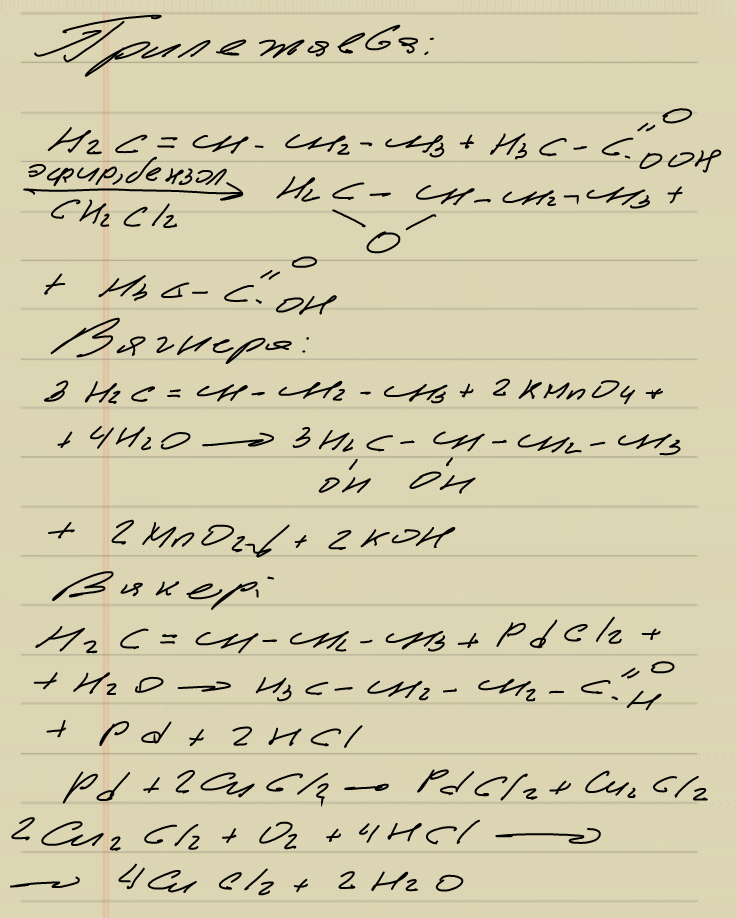 Прилежаева:
H₂C = CH - CH₂ - CH₃ + H₃C - C =O OOH
эфир, бензол
CH₂Cl₂ → H₂C - CH - CH₂ - CH₃ +
O
+ H₃C - C =O OH
Вагнера:
3 H₂C = CH - CH₂ - CH₃ + 2 KMnO₄ +
+ 4H₂O → 3H₂C - CH - CH₂ - CH₃
OH OH
+ 2 MnO₂↓ + 2 KOH
Вакер:
H₂C = CH - CH₂ - CH₃ + PdCl₂ +
+ H₂O → H₃C - CH₂ - CH₂ - C =O H
+ Pd + 2HCl
Pd + 2CuCl₂ → PdCl₂ + Cu₂Cl₂
2Cu₂Cl₂ + O₂ + 4HCl →
→ 4CuCl₂ + 2H₂O